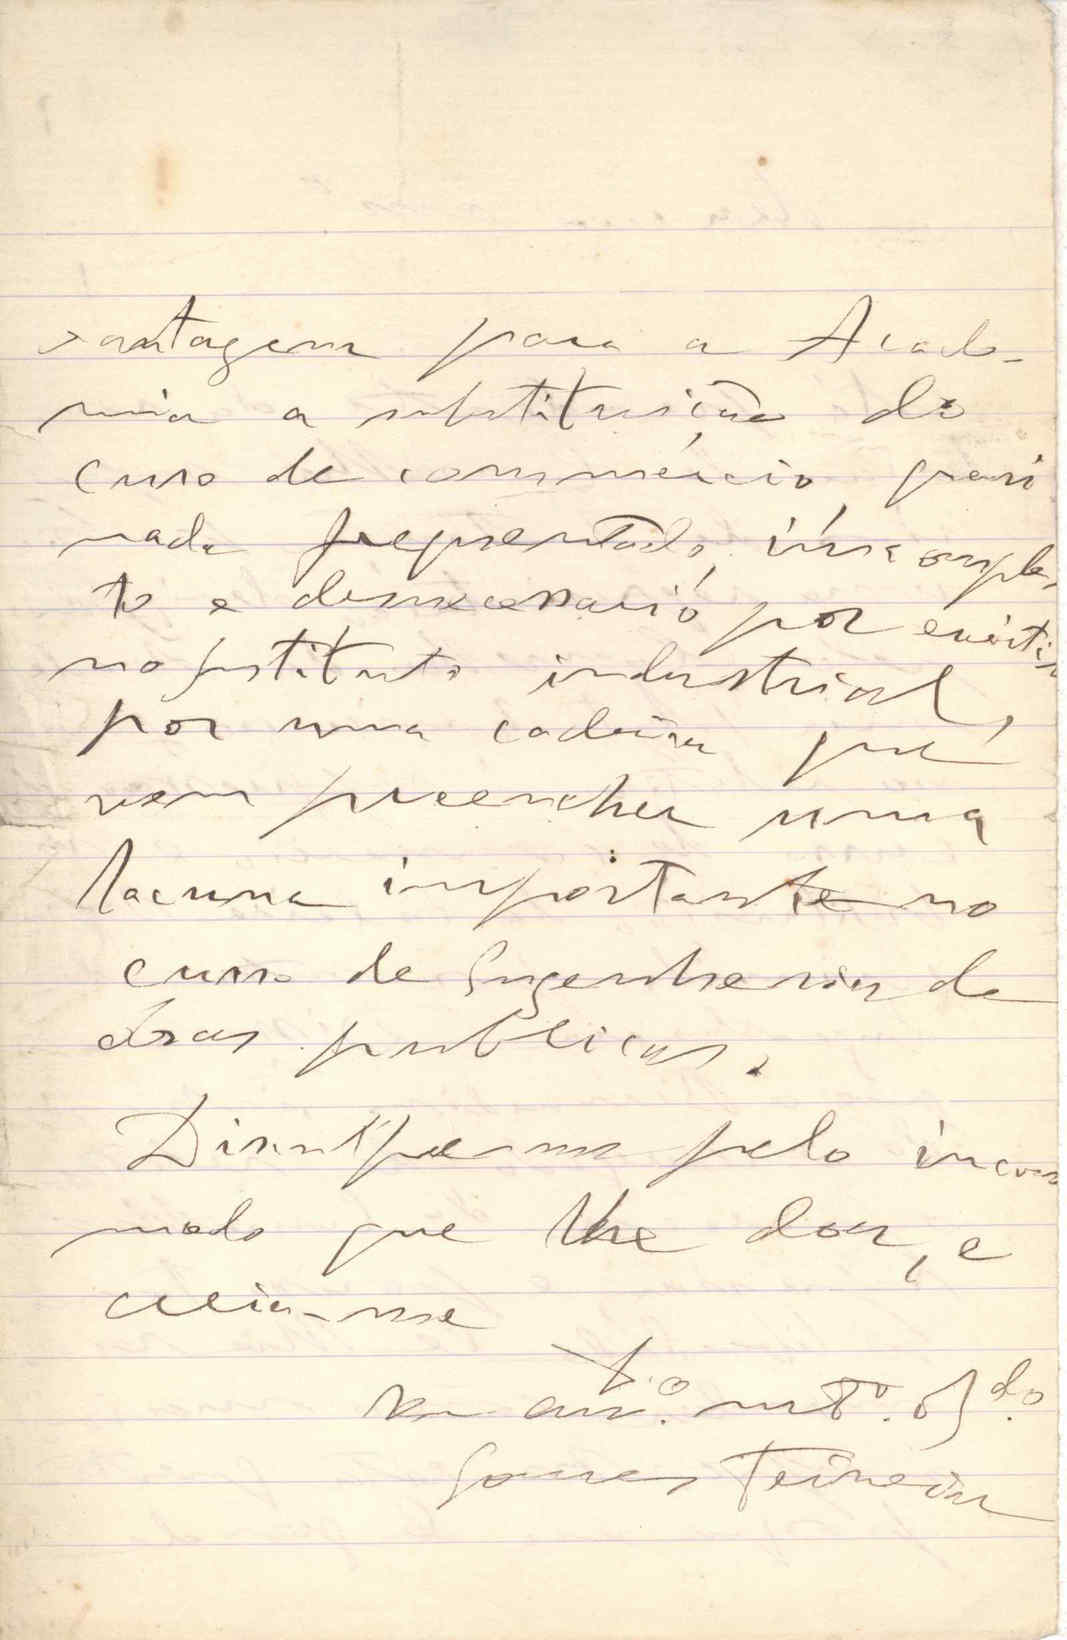 vantagem para a Acade-
mia a substituição do
curso de commércio, quasi
nada frequentado, incomple-
to e desnecessario por existir
no Instituto industrial,
por uma cadeira que
vem preencher uma
lacuna importante no
curso de Engenheria de
obras publicas.
Disculpe-me pelo incom
modo que lhe dou, e
creia-me
am.º mtº. obgdo.
Gomes Teixeira